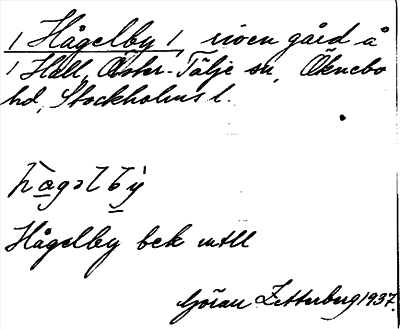 Hågelby, riven gård å
Hall, Öster-Tälje sn, Öknebo
hd, Stockholms l.
hagəlby
Hågelby bek mtll
Göran Zetterberg 1937.